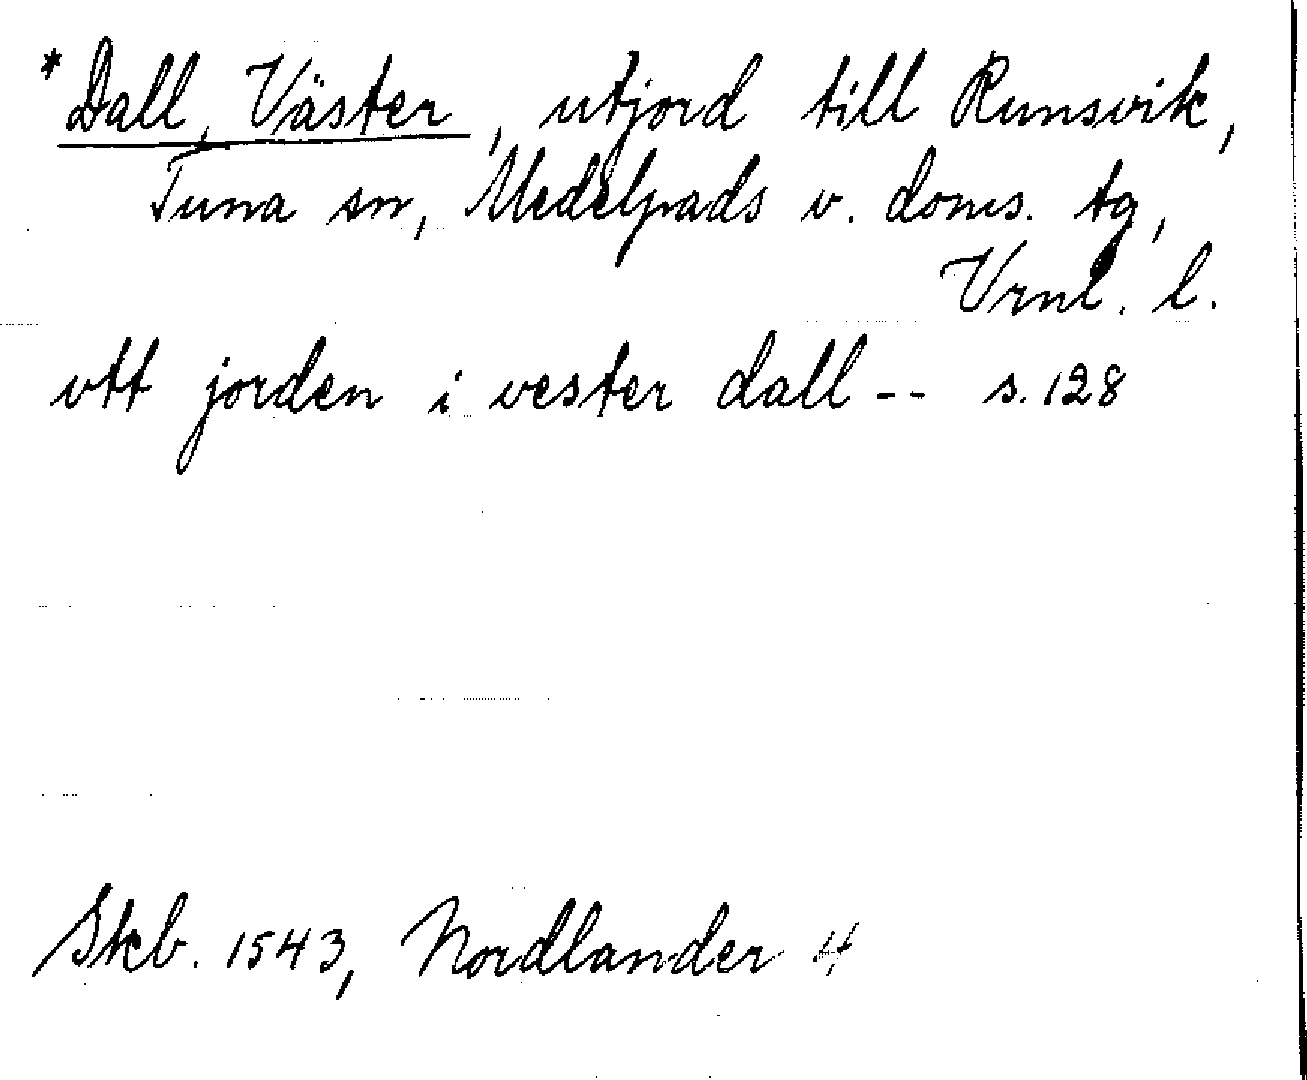 *Dall, Väster, utjord till Runsvik,
Tuna sn, Medelpads v. doms. tg,
Vrnl. l.
vtt jorden i vester dall -- s. 128
Skb. 1543, Nordlander 4